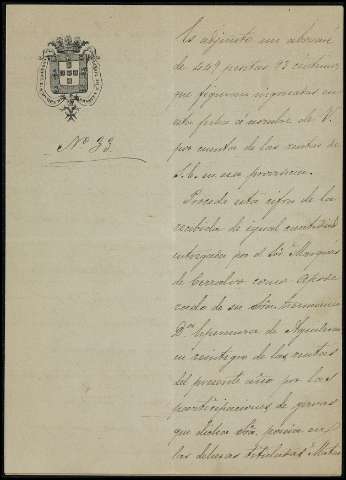 Nº 33
Es adjunto un abonaré
de 449 pesetas 93 centimos
que figuran ingresadas en
esta fecha á nombre de V.
por cuenta de las rentas de
S. E. en esa provincia.
Procede esta cifra de la
recibida de igual cantidad
entregada por el Sor. Marques
de Cerralvo como Apode
rado de su Sra. hermana
Dª de Aguilera
en reintegro de las rentas
del presente año por las
participaciones de yervas
que dicha Sra. poseia en
las dehesas tituladas